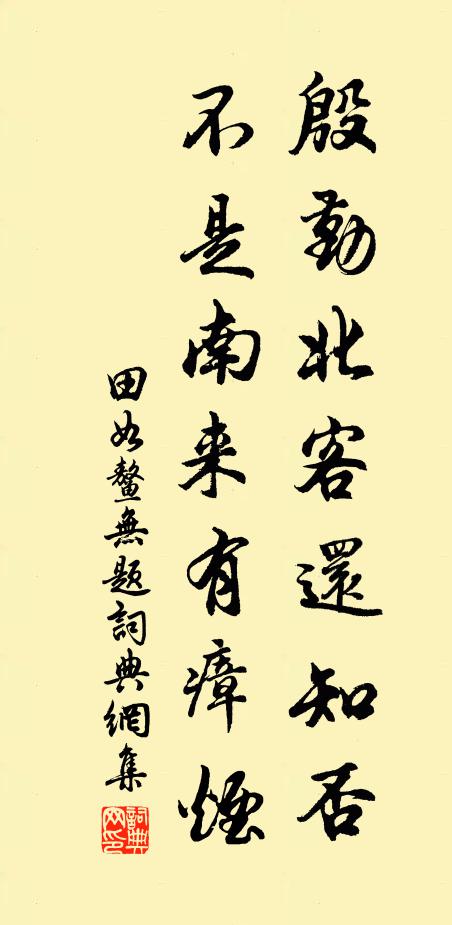 殷勤北客還知否
不是南来有瘴煙
田如鳌無题詞典網集
詞典网印